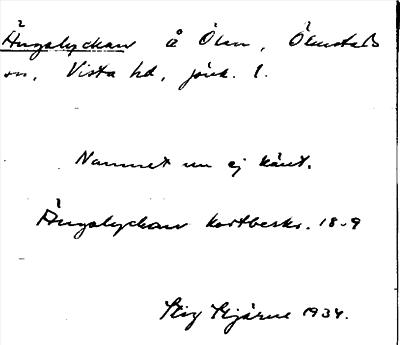 Ängslyckan å Ölen, Ölmstads
sn, Vista hd, Jönk. l.
Namnet nu ej känt.
Ängslyckan kartbeskr. 18-9
Stig Stjärne 1934.